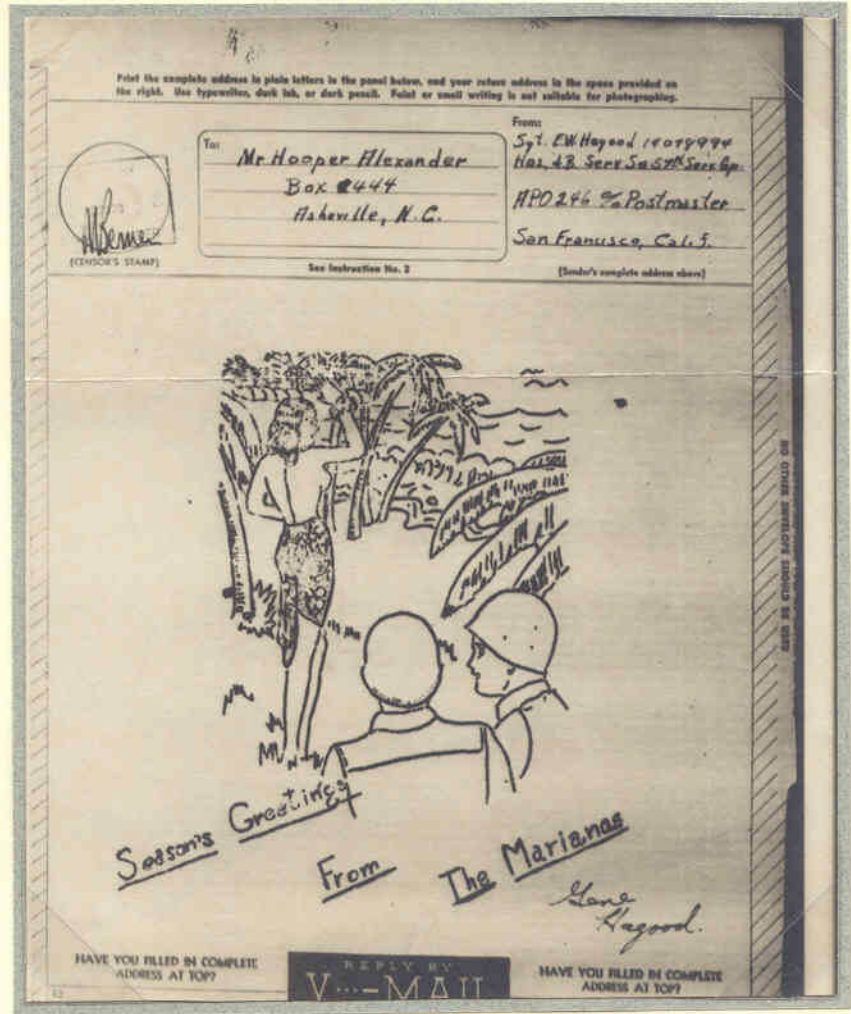 Print the complete address in plain letters in the panel below, and your return address in the space provided on
the right. Use typewriter, dark ink, or dark pencil. Faint or small writing is not suitable for photographing.
To:
Mr Hooper Alexander
Box 444
Asheville, N.C.
See Instruction No. 2
From:
Sgt. E.W. Hagood 14078994
Hqs. & B. Serv Sq 57th Serv Gp.
APO 246 % Postmaster
San Francisco, Calif.
(Sender's complete address above)
(CENSOR'S STAMP)
NO OTHER ENVELOPE SHOULD BE USED
Season's Greetings
From The Marianas
Gene
Hagood.
HAVE YOU FILLED IN COMPLETE
ADDRESS AT TOP?
REPLY BY
V···—MAIL
HAVE YOU FILLED IN COMPLETE
ADDRESS AT TOP?